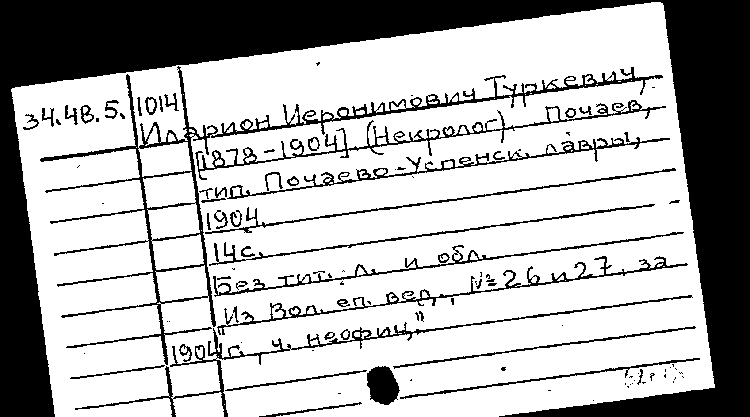 34.48.5. 1014
Иларион Иеронимович Туркевич,
[1878-1904]. (Некролог). Почаев,
тип. Почаево-Успенск. лавры,
1904.
14 с.
Без тит. л. и обл.
"Из Вол. еп. вед., №26 и 27, за
1904 г., ч. неофиц."